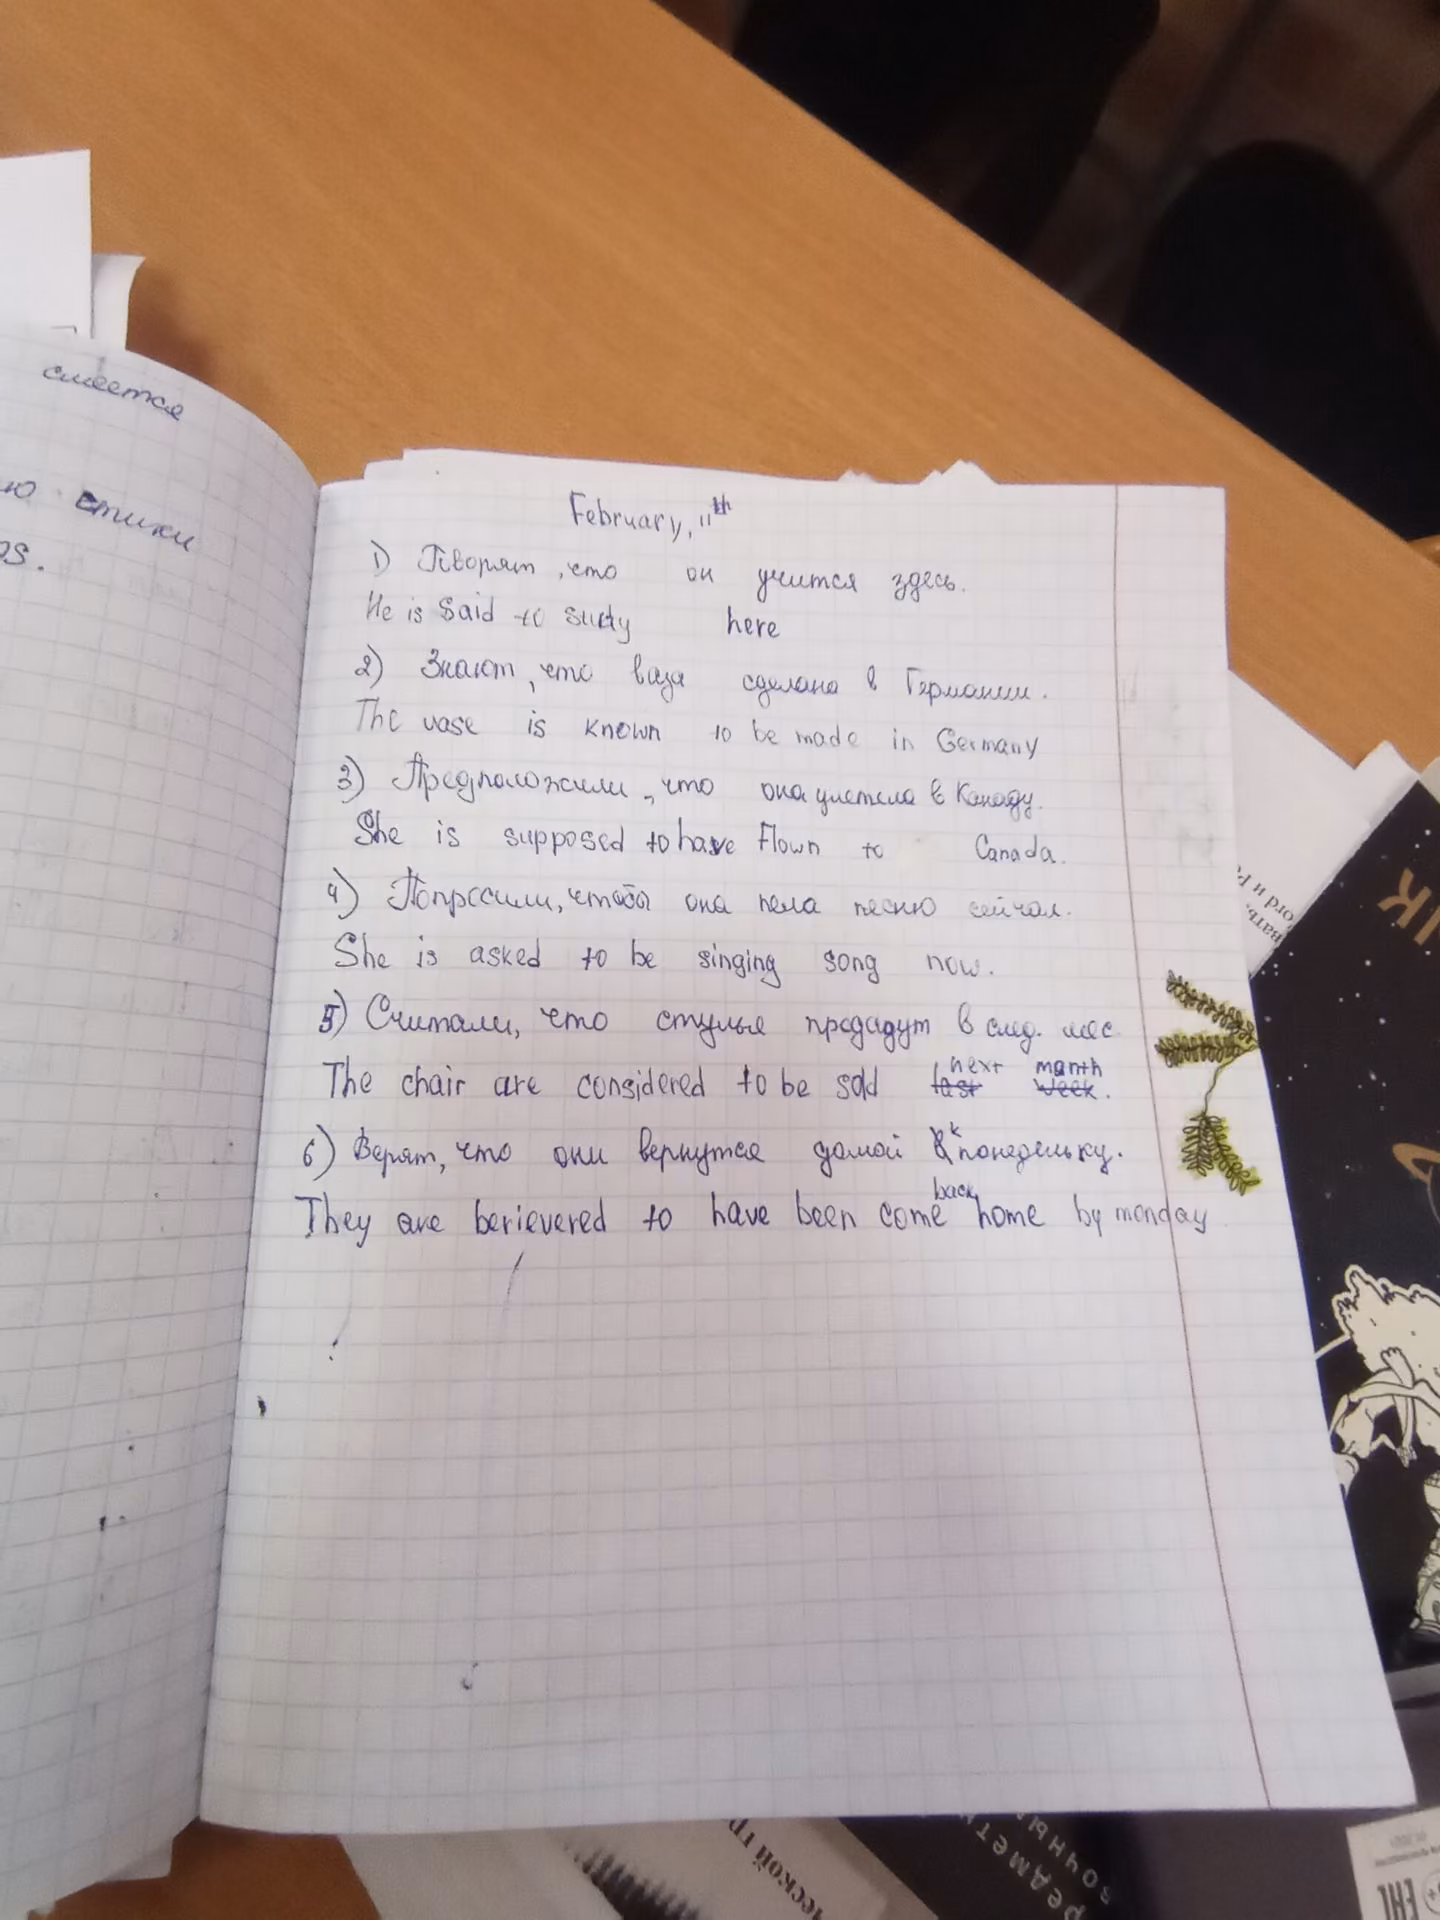 смеется
ю стихи
os.
February, 11th
1) Говорят, что он учится здесь.
He is said to study here
2) Знают, что ваза сделана в Германии.
The vase is known to be made in Germany
3) Предположили, что она улетела в Канаду.
She is supposed to have flown to Canada.
4) Попросили, чтобы она пела песню сейчас.
She is asked to be singing song now.
5) Считали, что стулья продадут в след. мес.
next month
The chair are considered to be sold last week.
6) Верят, что они вернутся домой к понедельку.
back
They are berievered to have been come home by monday
ческой гр
ord и P
вать,
ИК
ЕАС